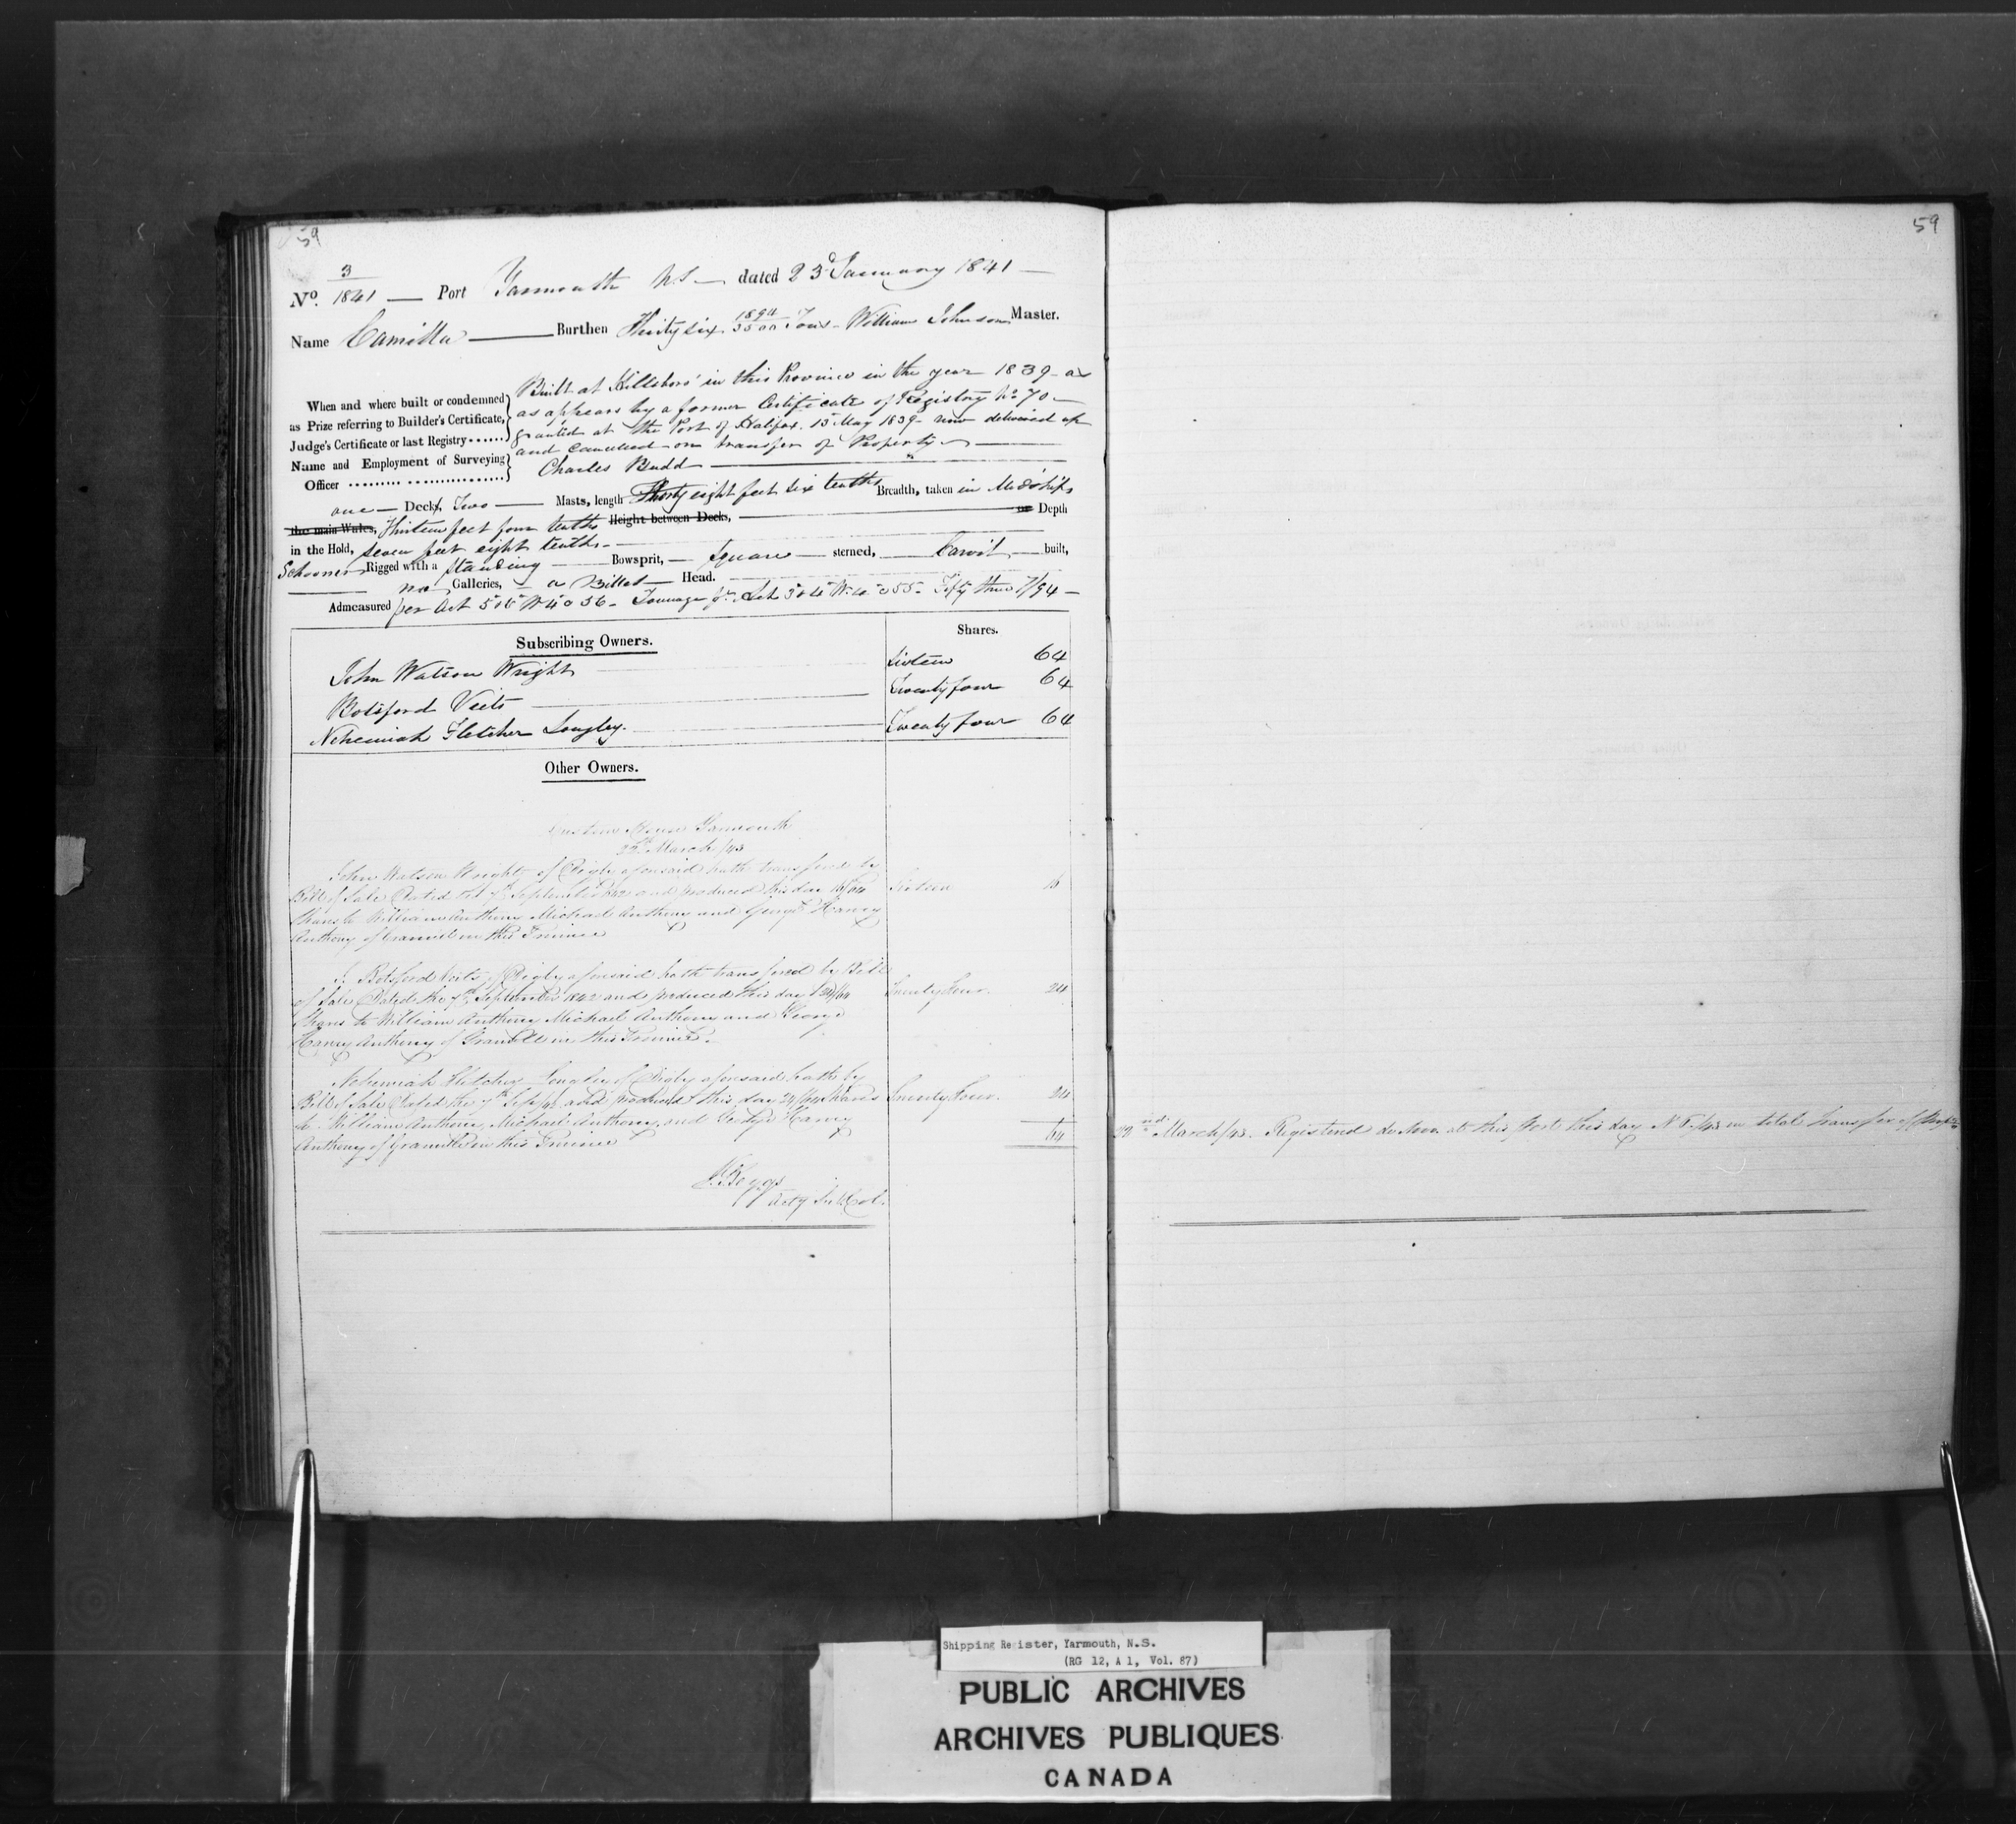 59
59
No. 3/1841 — Port Yarmouth N.S — dated 23d January 1841 —
Name Camilla — Burthen Thirty six 1894/3500 Tons — William Johnson Master.
When and where built or condemned as Prize referring to Builder's Certificate, Judge's Certificate or last Registry ......
Built at Hillsboro' in this Province in the year 1839 as
as appears by a former Certificate of Registry No 70 —
granted at the Port of Halifax. 15 May 1839 now delivered up
and Cancelled on transfer of Property —
Name and Employment of Surveying Officer ......... ................
Charles Budd —
one — Deck, Two — Masts, length Thirty eight feet six tenths Breadth, taken in Midships
the main Wales, Thirteen feet four tenths Height between Decks, — or Depth
in the Hold, seven feet eight tenths —
Schooner Rigged with a standing — Bowsprit, — square — sterned, — Carvil — built,
— no Galleries, — a Billet — Head.
Admeasured per Act 5 & 6 W 4 c 56 — Tonnage pr. Act 3 & 4 W. 4 c 55 — Fifty three 7/94 —
Subscribing Owners. Shares.
John Watson Wright — Sixteen 64
Botsford Viets — Twenty four 64
Nehemiah Fletcher Longley. — Twenty four 64
Other Owners.
Custom House Yarmouth
22d March /43
John Watson Wright of Digby aforesaid hath transfered by
Bill of Sale Dated the 7th September 1842 and produced this day 16/64 Sixteen 16
Shares to William Anthony Michael Anthony and George Harvey
Anthony of Granvill in this Province
Botsford Viets of Digby aforesaid hath transfered by Bill
of Sale Dated the 7th September 1842 and produced this day 24/64 Twenty Four. 24
Shares to William Anthony Michael Anthony and George
Harvey Anthony of Granville in this Province.
Nehemiah Fletcher Longley of Digby aforesaid hath by
Bill of Sale Dated the 7th Sept /42 and produced this day 24/64 Shares Twenty Four. 24
to William Anthony, Michael Anthony, and George Harvey
Anthony of Granville in this Province 64
Beggs
Actg
22nd March /43. Registered de Novo at this Port this day No /43 on total transfer of
Shipping Register, Yarmouth, N.S.
(RG 12, A 1, Vol. 87)
PUBLIC ARCHIVES
ARCHIVES PUBLIQUES
CANADA